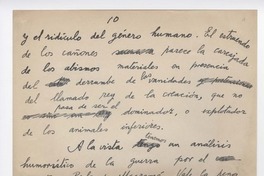 10
y el ridículo del género humano. El estruendo
de los cañones parece la carcajada
de los abismos materiales en presencia
del derrumbe de las vanidades
del llamado rey de la creación, que no
pasa de ser el
dominador, o explotador
de los animales inferiores.
A la vista tenemos un análisis
humorístico de la guerra por el
Vale la pena